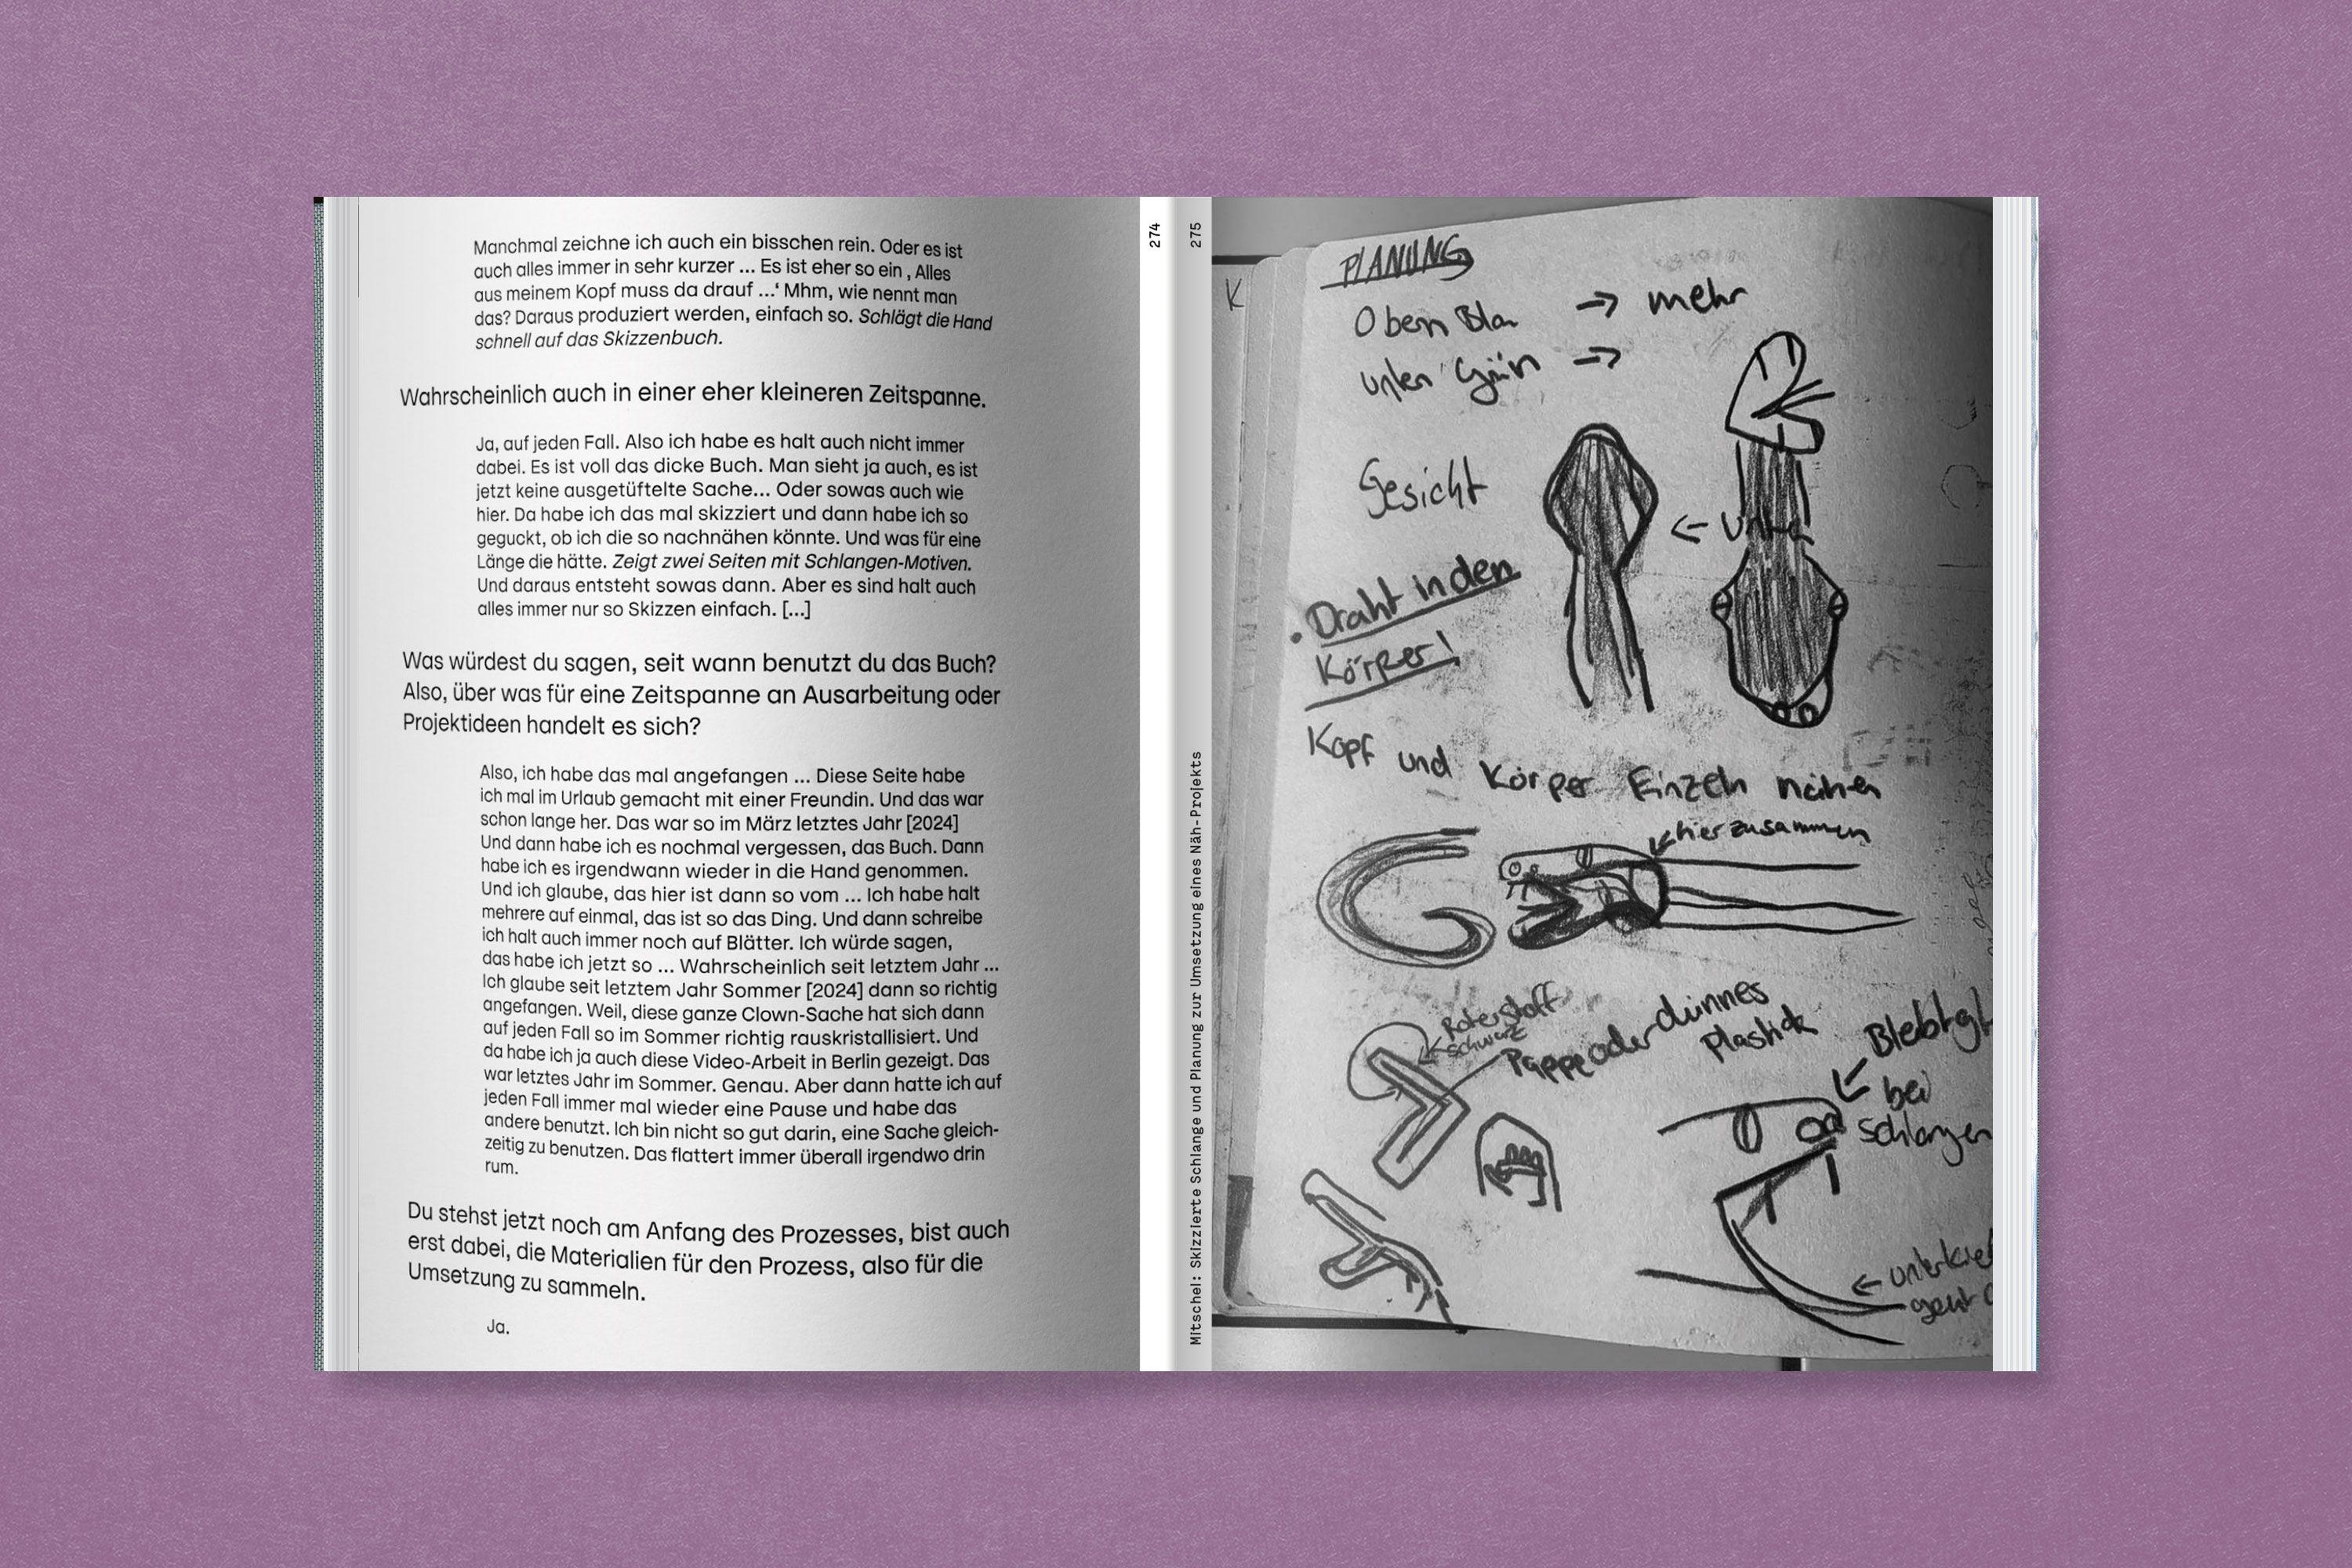 Manchmal zeichne ich auch ein bisschen rein. Oder es ist
auch alles immer in sehr kurzer ... Es ist eher so ein ‚ Alles
aus meinem Kopf muss da drauf ...‘ Mhm, wie nennt man
das? Daraus produziert werden, einfach so. Schlägt die Hand
schnell auf das Skizzenbuch.
Wahrscheinlich auch in einer eher kleineren Zeitspanne.
Ja, auf jeden Fall. Also ich habe es halt auch nicht immer
dabei. Es ist voll das dicke Buch. Man sieht ja auch, es ist
jetzt keine ausgetüftelte Sache... Oder sowas auch wie
hier. Da habe ich das mal skizziert und dann habe ich so
geguckt, ob ich die so nachnähen könnte. Und was für eine
Länge die hätte. Zeigt zwei Seiten mit Schlangen-Motiven.
Und daraus entsteht sowas dann. Aber es sind halt auch
alles immer nur so Skizzen einfach. [...]
Was würdest du sagen, seit wann benutzt du das Buch?
Also, über was für eine Zeitspanne an Ausarbeitung oder
Projektideen handelt es sich?
Also, ich habe das mal angefangen ... Diese Seite habe
ich mal im Urlaub gemacht mit einer Freundin. Und das war
schon lange her. Das war so im März letztes Jahr [2024]
Und dann habe ich es nochmal vergessen, das Buch. Dann
habe ich es irgendwann wieder in die Hand genommen.
Und ich glaube, das hier ist dann so vom ... Ich habe halt
mehrere auf einmal, das ist so das Ding. Und dann schreibe
ich halt auch immer noch auf Blätter. Ich würde sagen,
das habe ich jetzt so ... Wahrscheinlich seit letztem Jahr ...
Ich glaube seit letztem Jahr Sommer [2024] dann so richtig
angefangen. Weil, diese ganze Clown-Sache hat sich dann
auf jeden Fall so im Sommer richtig rauskristallisiert. Und
da habe ich ja auch diese Video-Arbeit in Berlin gezeigt. Das
war letztes Jahr im Sommer. Genau. Aber dann hatte ich auf
jeden Fall immer mal wieder eine Pause und habe das
andere benutzt. Ich bin nicht so gut darin, eine Sache gleich-
zeitig zu benutzen. Das flattert immer überall irgendwo drin
rum.
Du stehst jetzt noch am Anfang des Prozesses, bist auch
erst dabei, die Materialien für den Prozess, also für die
Umsetzung zu sammeln.
Ja.
274
275
Mitschel: Skizzierte Schlange und Planung zur Umsetzung eines Näh-Projekts
K
PLANUNG
Oben Bla → mehr
unten Grün →
Gesicht
←
• Draht in den
Körper!
Kopf und Körper Einzeln nähen
hier zusammen
Roter Stoff
schwarz
Pappe oder dünnes
Plastick
bei
Schlangen
← unterkie
geht